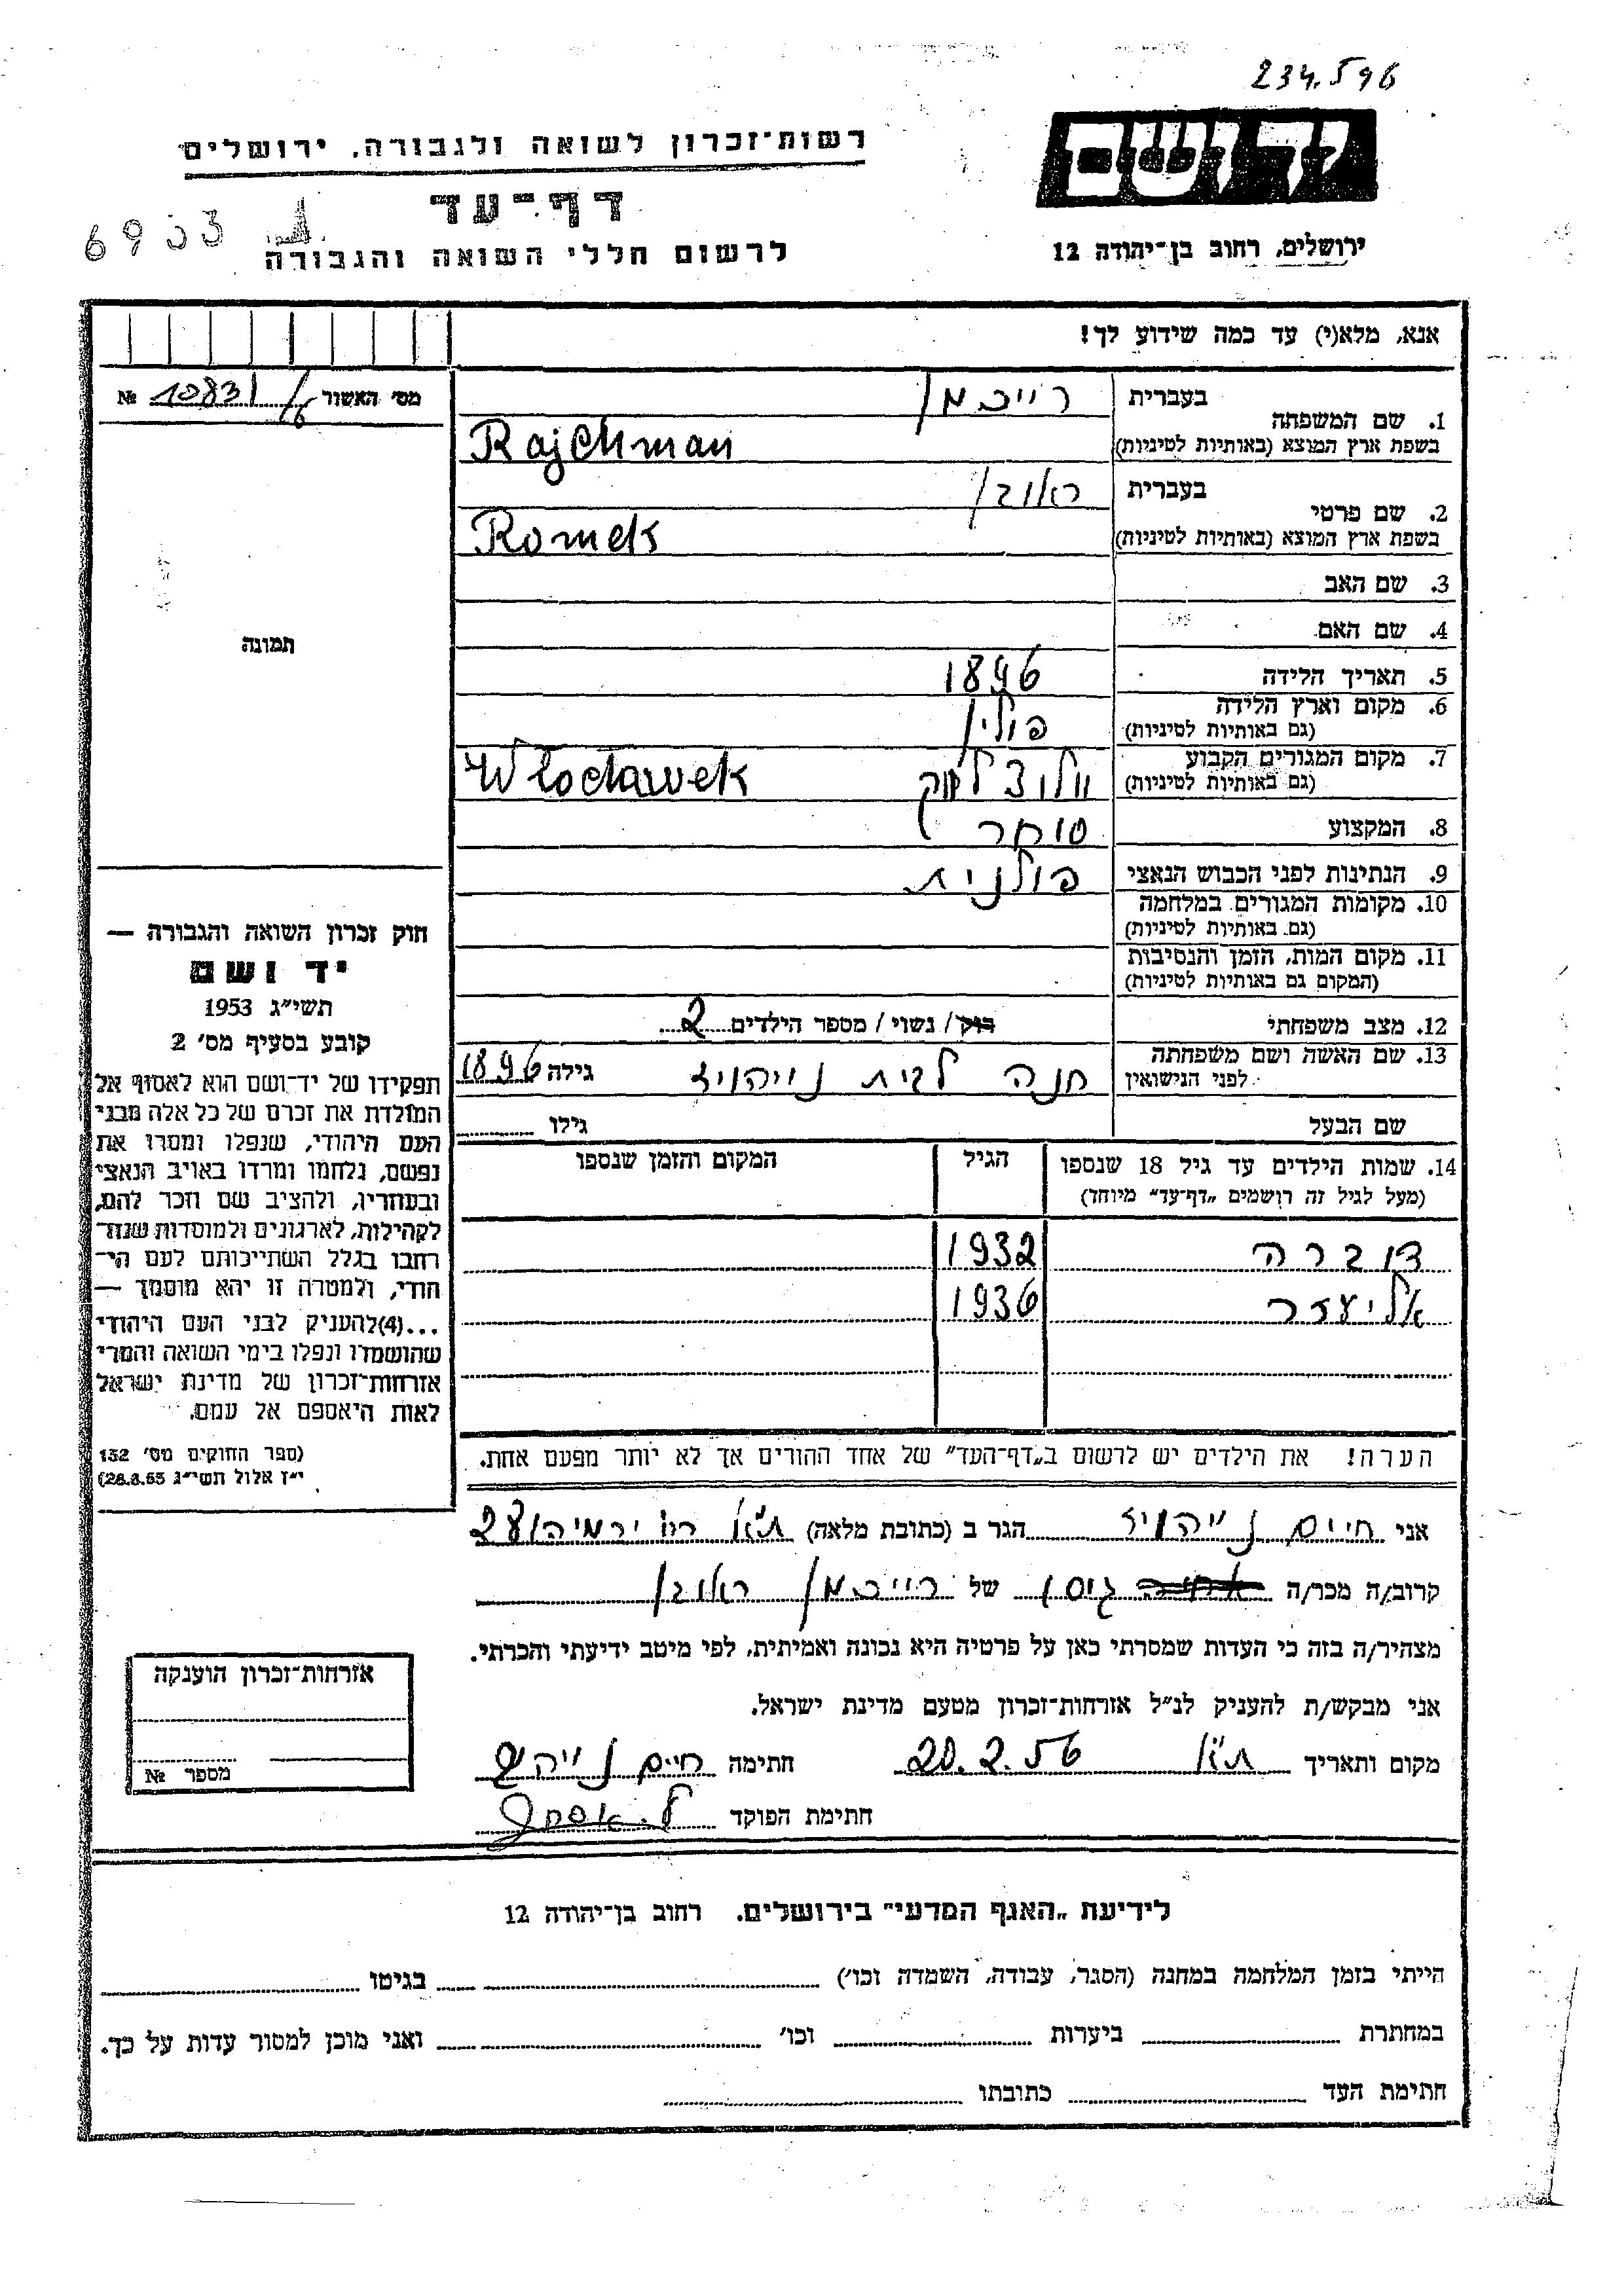 234.596
יד ושם
רשות־זכרון לשואה ולגבורה, ירושלים
דף־עד
לרשום חללי השואה והגבורה
ירושלים, רחוב בן־יהודה 12
אנא, מלא(י) עד כמה שידוע לך!
מס' האשור 10831/16 №
1. שם המשפחה
בעברית רייכמן
בשפת ארץ המוצא (באותיות לטיניות) Rajchman
2. שם פרטי
בעברית ראובן
בשפת ארץ המוצא (באותיות לטיניות) Romek
3. שם האב
4. שם האם
5. תאריך הלידה 1896
6. מקום וארץ הלידה פולין
(גם באותיות לטיניות)
7. מקום המגורים הקבוע
(גם באותיות לטיניות) וולוצלווק Włocławek
8. המקצוע סוחר
9. הנתינות לפני הכבוש הנאצי פולנית
10. מקומות המגורים במלחמה
(גם באותיות לטיניות)
11. מקום המות, הזמן והנסיבות
(המקום גם באותיות לטיניות)
12. מצב משפחתי רווק/ נשוי/ מספר הילדים 2
13. שם האשה ושם משפחתה
לפני הנישואין חנה לבית נייהויז גילה 1896
שם הבעל גילו
14. שמות הילדים עד גיל 18 שנספו הגיל המקום והזמן שנספו
(מעל לגיל זה רושמים „דף־עד” מיוחד)
דוברה 1932
אליעזר 1936
הערה! את הילדים יש לרשום ב„דף־העד” של אחד ההורים אך לא יותר מפעם אחת.
תמונה
חוק זכרון השואה והגבורה —
יד ושם
תשי״ג 1953
קובע בסעיף מס' 2
תפקידו של יד־ושם הוא לאסוף אל
המולדת את זכרם של כל אלה מבני
העם היהודי, שנפלו ומסרו את
נפשם, נלחמו ומרדו באויב הנאצי
ובעוזריו, ולהציב שם וזכר להם,
לקהילות, לארגונים ולמוסדות שנח־
רבו בגלל השתייכותם לעם הי־
הודי, ולמטרה זו יהא מוסמך —
...(4) להעניק לבני העם היהודי
שהושמדו ונפלו בימי השואה והמרי
אזרחות־זכרון של מדינת ישראל
לאות היאספם אל עמם.
(ספר החוקים מס' 132
י״ז אלול תשי״ג 28.8.53)
אני חיים נייהויז הגר ב (כתובת מלאה) ת״א רח' ירמיהו 28
קרוב/ה מכר/ה גיסו של רייכמן ראובן
מצהיר/ה בזה כי העדות שמסרתי כאן על פרטיה היא נכונה ואמיתית, לפי מיטב ידיעתי והכרתי.
אני מבקש/ת להעניק לנ״ל אזרחות־זכרון מטעם מדינת ישראל.
מקום ותאריך ת״א 20.2.56 חתימה חיים נייהויז
חתימת הפוקד
אזרחות־זכרון הוענקה
מספר №
לידיעת „האגף המדעי” בירושלים. רחוב בן־יהודה 12
הייתי בזמן המלחמה במחנה (הסגר, עבודה, השמדה וכו') בגיטו
במחתרת ביערות וכו' ואני מוכן למסור עדות על כך.
חתימת העד כתובתו